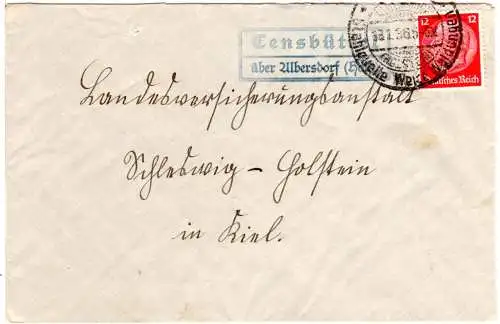 Tensbüt
über Albersdorf (
12 12
Deutsches Reich
13.1.36.5
Landesversicherungsanstalt
Schleswig - Holstein
in Kiel.